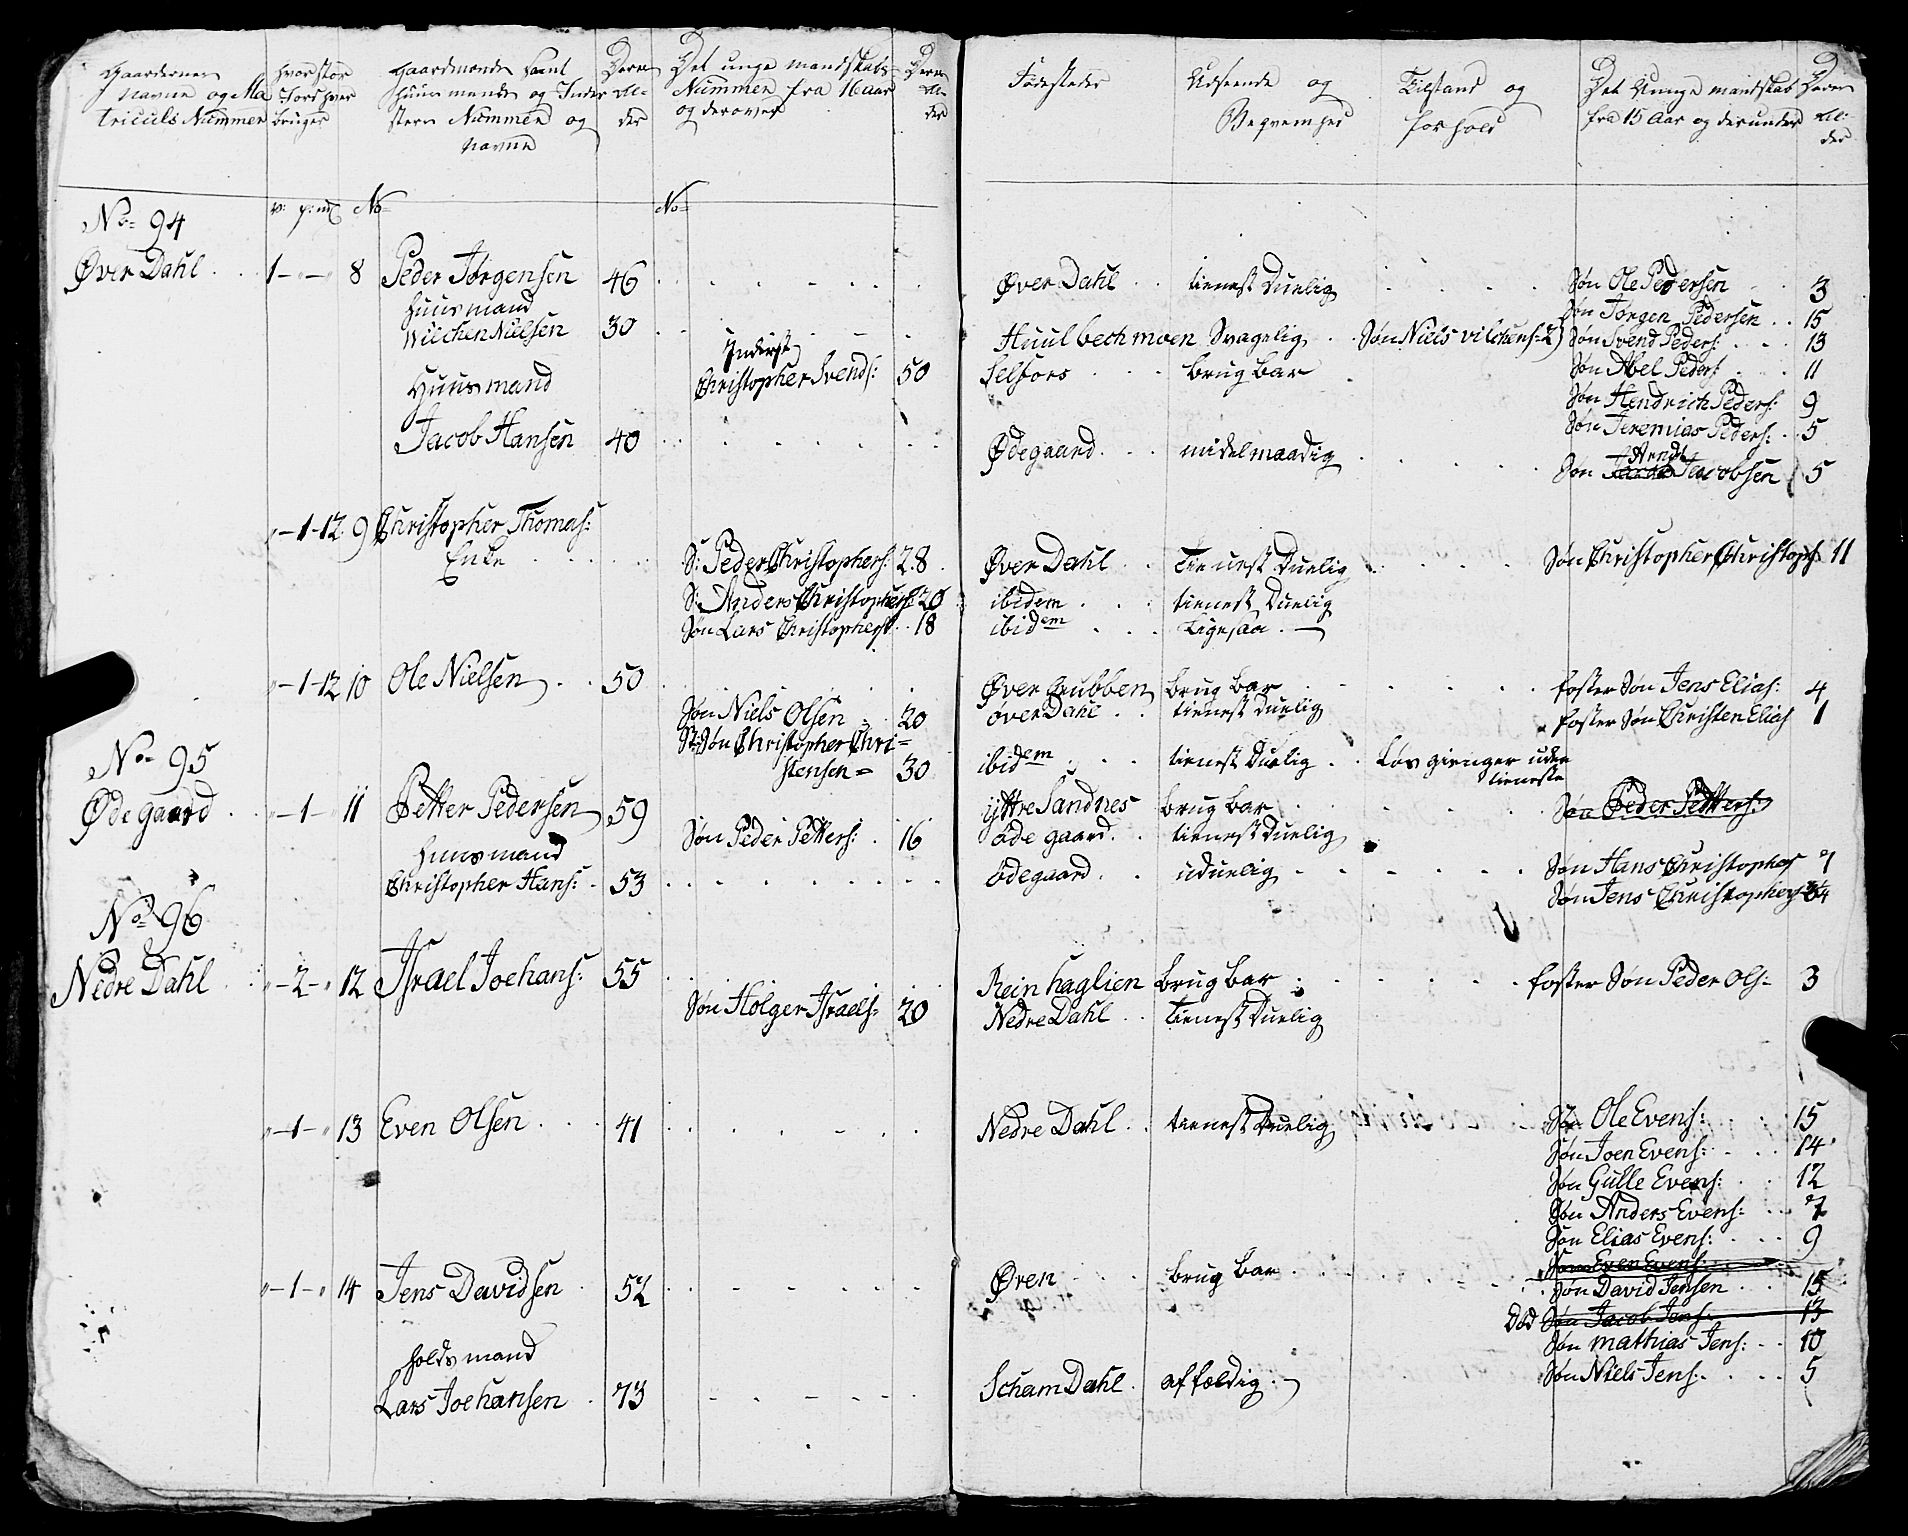 Gaardernes navne og Matriculs Nummer
hvor stor Jord hver bruger
Gaardmænds samt huusmænds og Indersters Nummer og navne
Deres Alder
Det unge mandskabs Nummer fra 16 aar og derover
Deres Alder
Fødesteder
Udseende og Beqvemhed
Tilstand og forhold
Det Unge mandskab fra 15 Aar og derunder
Deres Alder
No= 94
Øver Dahl . . 1 – " – " 8 Peder Jørgensen 46 Øver Dahl tienest Duelig Søn Ole Pedersen 3
Søn Jørgen Pedersen 15
Huusmand
Wilchen Nielsen 30 Huulbechmoen Svagelig Søn Niels Vilchens: 2) Søn Svend Peders: 13
Inderst
Christopher Svends: 50 Selfors brugbar Søn Abel Peders: 11
Huusmand Søn Hendrich Peders: 9
Søn Jeremias Peders: 5
Jacob Hansen 40 Ødegaard midelmaadig Søn Arndt Jacobsen 5
" – 1 – 12 9 Christopher Thomas:
Enke S: Peder Christophers: 28 Øver Dahl Tienest Duelig Søn Christopher Christoph: 11
S: Anders Christophers: 20 ibidem tienest Duelig
Søn Lars Christophers: 18 ibidem Ligesaa
" – 1 – 12 10 Ole Nielsen 50 Øver Grubben brugbar foster Søn Jens Elias: 4
Søn Niels Olsen 20 øver Dahl tienest Duelig foster Søn Christen Elias 1
St: Søn Christopher Christensen = 30 ibidem tienest Duelig Løsgienger uden tieneste
No= 95
Ødegaard " – 1 – " 11 Petter Pedersen 59 ÿttre Sandnes brugbar Søn Peder Petters:
Søn Peder Petters: 16 øde gaard tienest Duelig
Huusmand
Christopher Hans: 53 ødegaard uduelig Søn Hans Christophers 7
Søn Jens Christophers 3/4
No= 96
Nedre Dahl " – 2 – " 12 Israel Joehans: 55 Reinhaglien brugbar foster Søn Peder Ols= 3
Søn Holger Israels= 20 Nedre Dahl Tienest Duelig
" – 1 – " 13 Even Olsen 41 Nedre Dahl tienest Duelig Søn Ole Evens: 15
Søn Joen Evens: 14
Søn Gulle Evens: 12
Søn Anders Evens: 7
Søn Elias Evens: 9
Søn Even Evens:
" – 1 – " 14 Jens Davidsen 52 Øren brugbar Søn David Jensen 15
Død Søn Jacob Jens: 13
Søn Mathias Jens: 10
holdsmand Søn Niels Jens: 5
Lars Joehansen 73 SchamDahl affældig